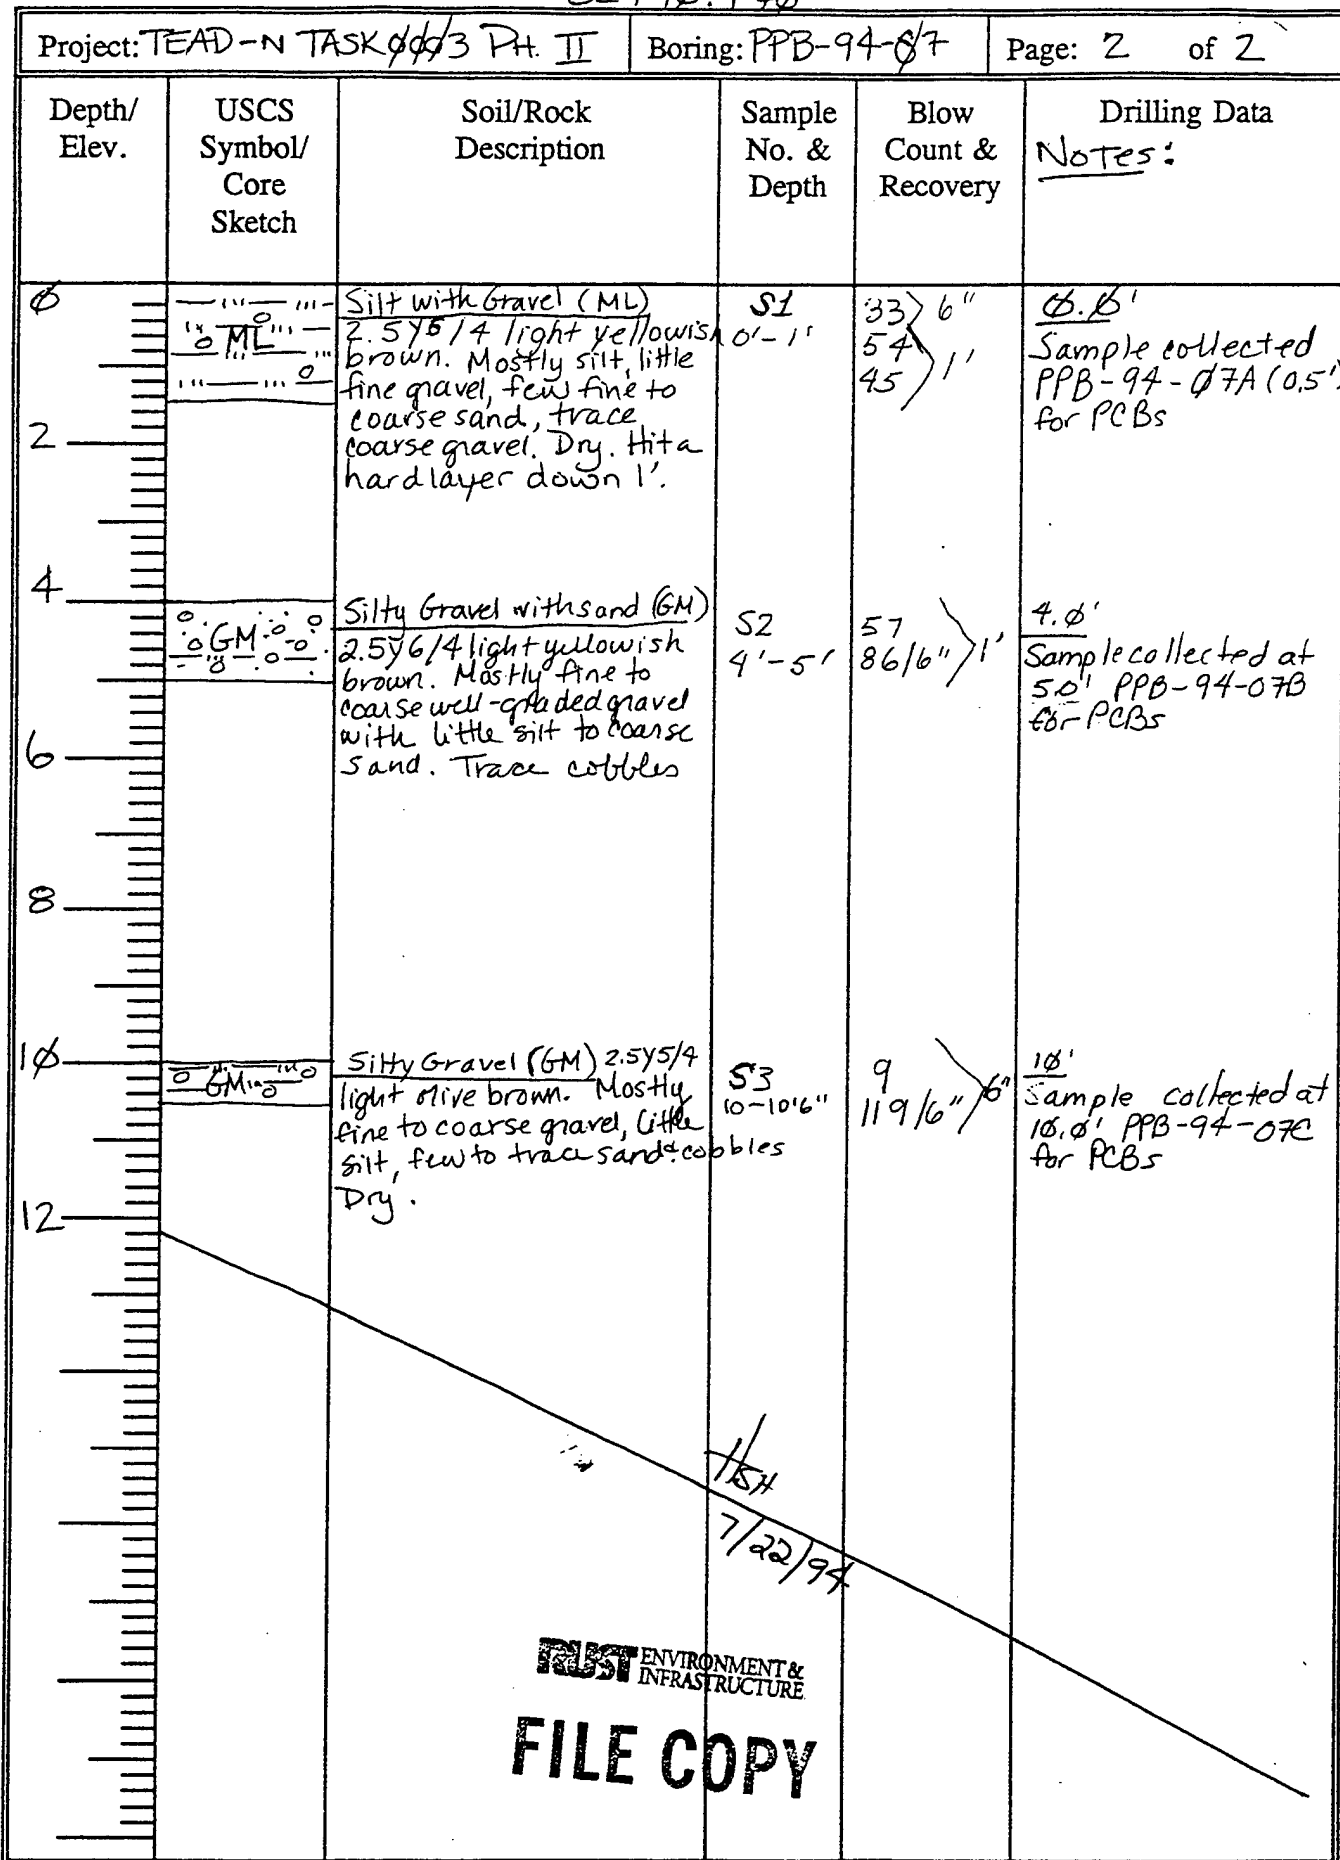 Project: TEAD-N TASK ØØØ3 PH. II Boring: PPB-94-Ø7 Page: 2 of 2
Depth/ Elev.
USCS Symbol/ Core Sketch
Soil/Rock Description
Sample No. & Depth
Blow Count & Recovery
Drilling Data
Notes:
Ø
ML
Silt with Gravel (ML)
2.5Y6/4 light yellowish
brown. Mostly silt, little
fine gravel, few fine to
coarse sand, trace
coarse gravel. Dry. Hit a
hard layer down 1'.
S1
0'-1'
33 6"
54
45 1'
Ø.Ø'
Sample collected
PPB-94-Ø7A (0.5')
for PCBs
2
4
GM
Silty Gravel with sand (GM)
2.5Y6/4 light yellowish
brown. Mostly fine to
coarse well-graded gravel
with little silt to coarse
sand. Trace cobbles
S2
4'-5'
57
86/6" 1'
4.Ø'
Sample collected at
5.0' PPB-94-07B
for PCBs
6
8
1Ø
GM
Silty Gravel (GM) 2.5Y5/4
light olive brown. Mostly
fine to coarse gravel, little
silt, few to trace sand & cobbles
Dry.
S3
10-10'6"
9
119/6" 6"
1Ø'
Sample collected at
1Ø.Ø' PPB-94-07C
for PCBs
12
7/22/94
RUST ENVIRONMENT &
INFRASTRUCTURE
FILE COPY